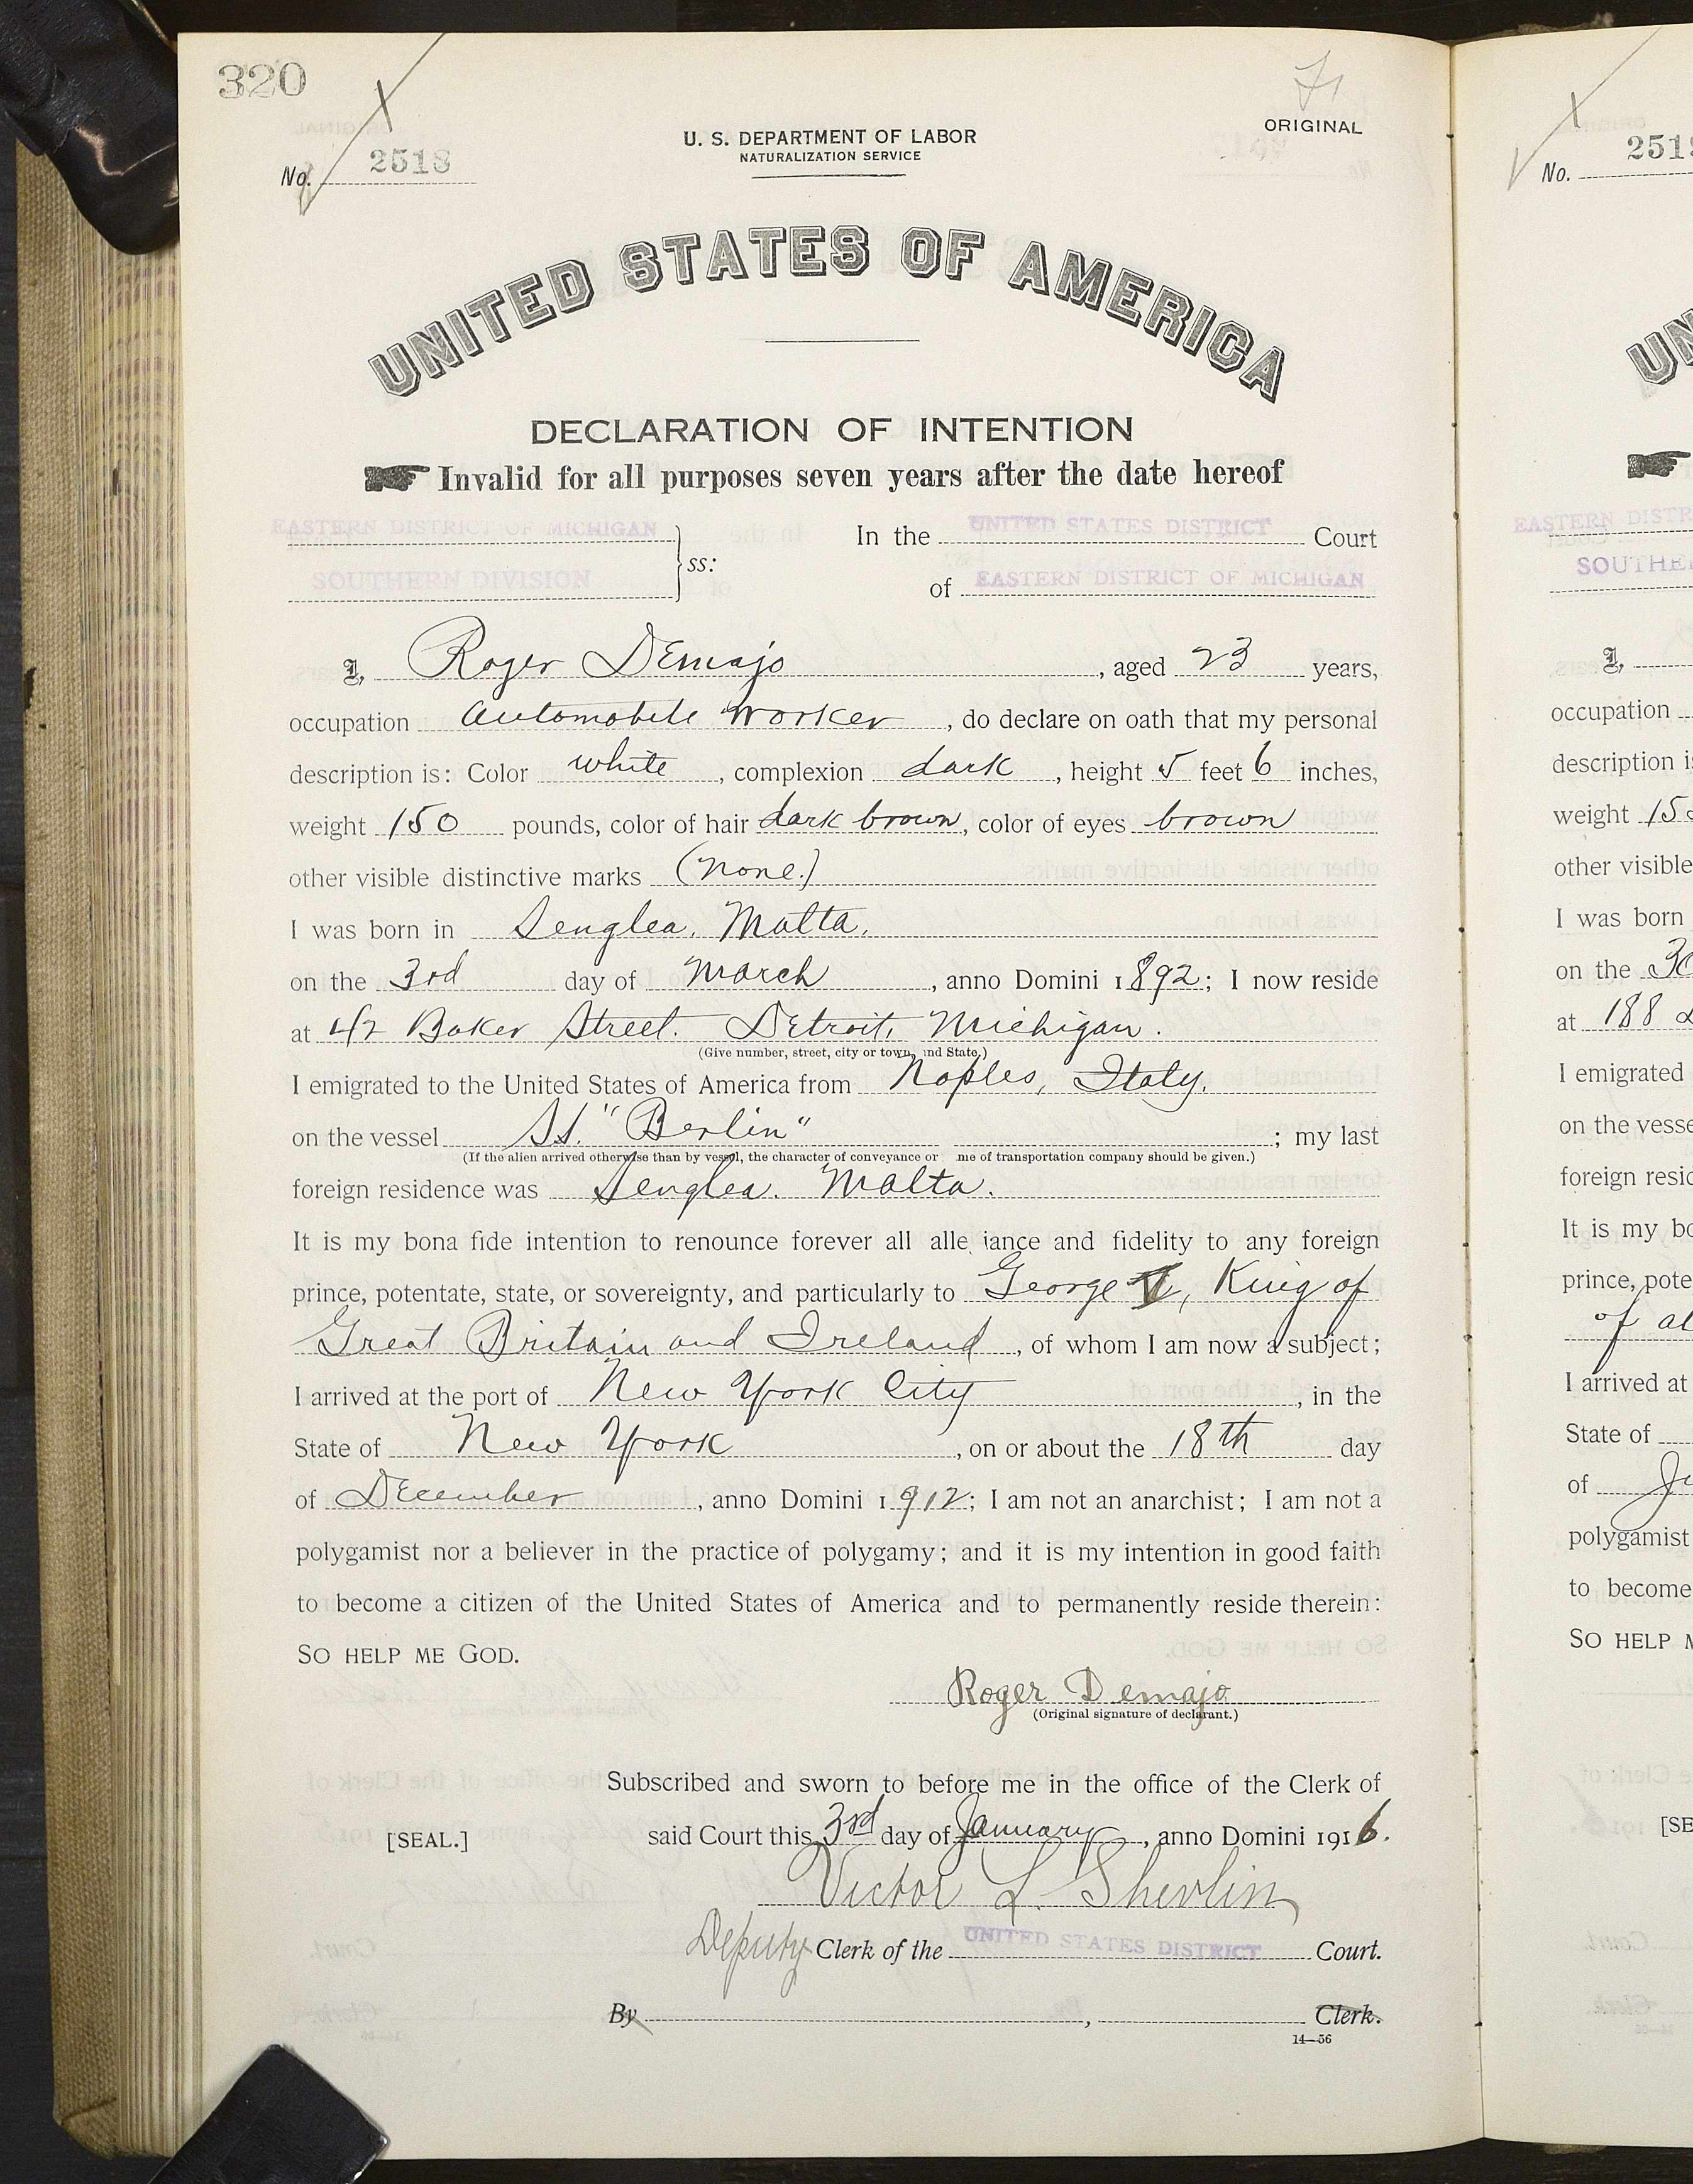 320
No. 2518
U. S. DEPARTMENT OF LABOR
NATURALIZATION SERVICE
ORIGINAL
UNITED STATES OF AMERICA
DECLARATION OF INTENTION
Invalid for all purposes seven years after the date hereof
EASTERN DISTRICT OF MICHIGAN
SOUTHERN DIVISION
ss:
In the UNITED STATES DISTRICT Court
of EASTERN DISTRICT OF MICHIGAN
I, Roger DEmajo, aged 23 years,
occupation Automobile Worker, do declare on oath that my personal
description is: Color white, complexion dark, height 5 feet 6 inches,
weight 150 pounds, color of hair dark brown, color of eyes brown
other visible distinctive marks (None.)
I was born in Senglea, Malta.
on the 3rd day of March, anno Domini 1892; I now reside
at 42 Baker Street. Detroit, Michigan.
(Give number, street, city or town, and State.)
I emigrated to the United States of America from Naples, Italy.
on the vessel SS. "Berlin"; my last
(If the alien arrived otherwise than by vessel, the character of conveyance or me of transportation company should be given.)
foreign residence was Senglea. Malta.
It is my bona fide intention to renounce forever all alle iance and fidelity to any foreign
prince, potentate, state, or sovereignty, and particularly to George V, King of
Great Britain and Ireland, of whom I am now a subject;
I arrived at the port of New York City, in the
State of New York, on or about the 18th day
of December, anno Domini 1912; I am not an anarchist; I am not a
polygamist nor a believer in the practice of polygamy; and it is my intention in good faith
to become a citizen of the United States of America and to permanently reside therein:
SO HELP ME GOD.
Roger Demajo
(Original signature of declarant.)
Subscribed and sworn to before me in the office of the Clerk of
[SEAL.] said Court this 3rd day of January, anno Domini 1916.
Victor L. Shevlin
Deputy Clerk of the UNITED STATES DISTRICT Court.
By , Clerk.
14—56
No. 251
UN
EASTERN DISTR
SOUTHE
I,
occupation
description i
weight 15
other visible
I was born
on the 30
at 188
I emigrated
on the vesse
foreign resid
It is my bo
prince, pote
of al
I arrived at
State of
of Ju
polygamist
to become
SO HELP M
[SE